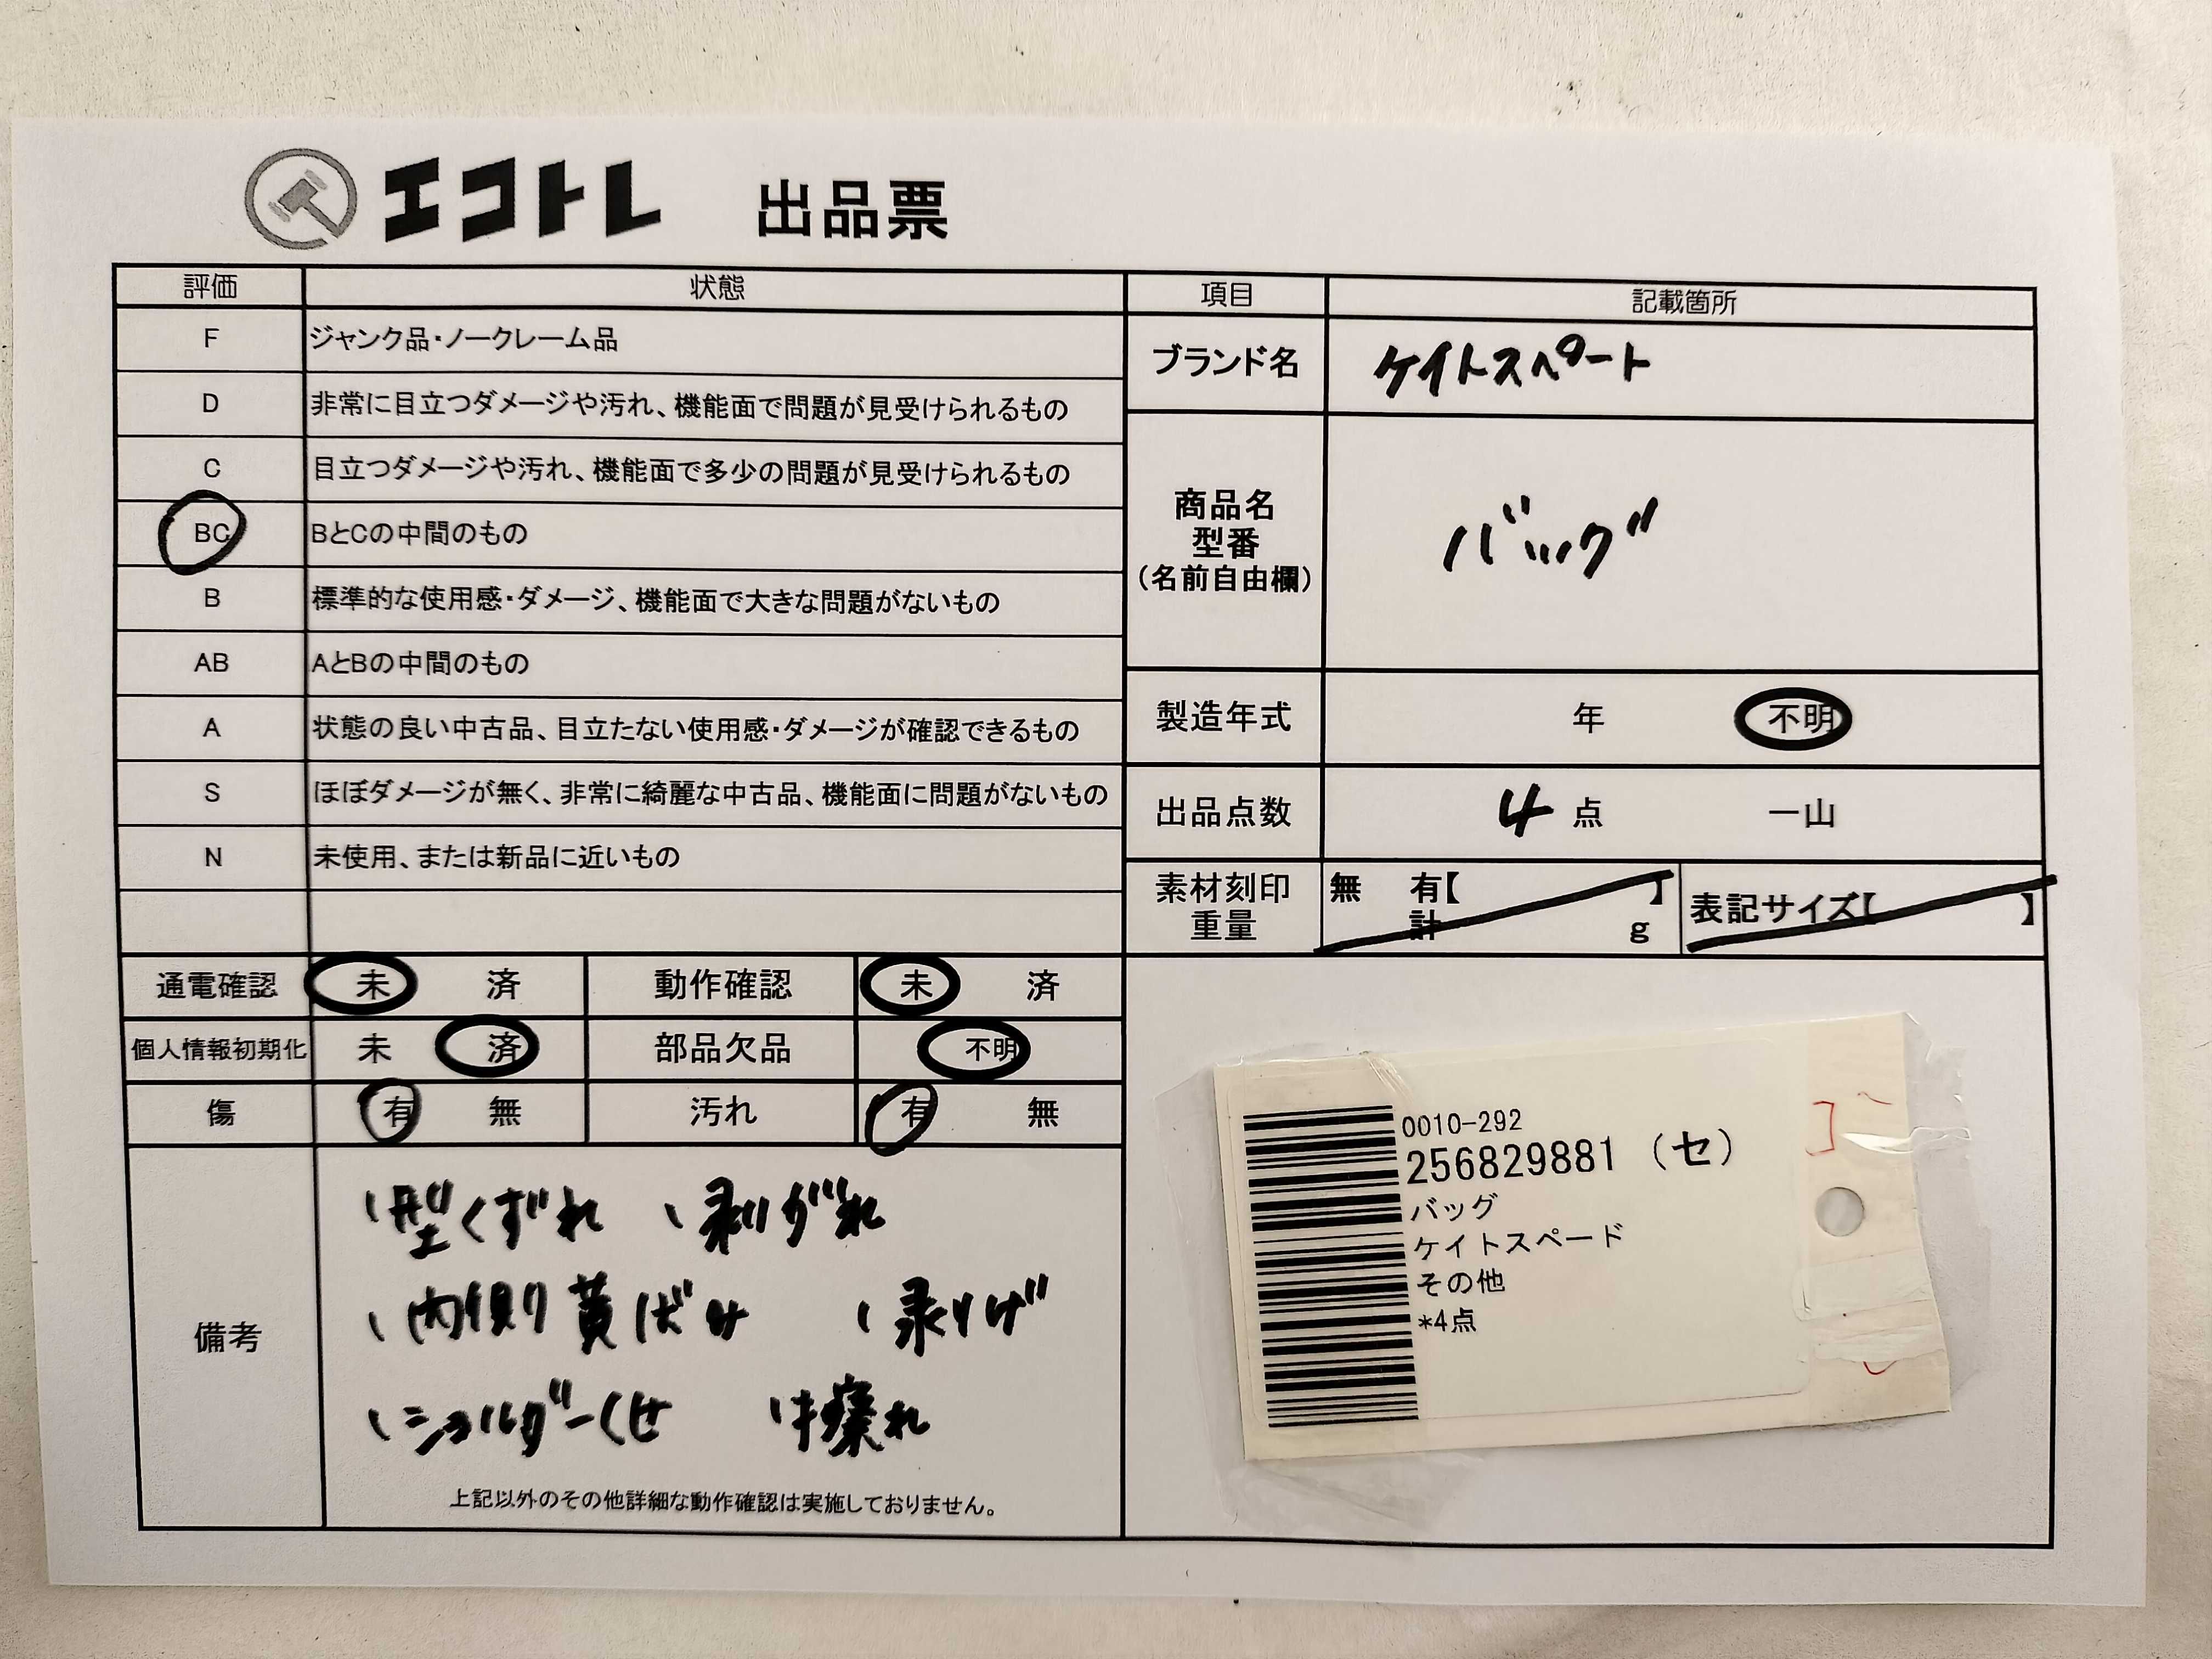 エコトレ 出品票
評価 状態
F ジャンク品・ノークレーム品
D 非常に目立つダメージや汚れ、機能面で問題が見受けられるもの
C 目立つダメージや汚れ、機能面で多少の問題が見受けられるもの
BC BとCの中間のもの
B 標準的な使用感・ダメージ、機能面で大きな問題がないもの
AB AとBの中間のもの
A 状態の良い中古品、目立たない使用感・ダメージが確認できるもの
S ほぼダメージが無く、非常に綺麗な中古品、機能面に問題がないもの
N 未使用、または新品に近いもの
通電確認 未 済 動作確認 未 済
個人情報初期化 未 済 部品欠品 不明
傷 有 無 汚れ 有 無
備考
、型くずれ 、剥がれ
、内側黄ばみ 、剥げ
、ショルダーくせ 、擦れ
上記以外のその他詳細な動作確認は実施しておりません。
項目 記載箇所
ブランド名 ケイトスペート
商品名
型番
(名前自由欄)
バッグ
製造年式 年 不明
出品点数 4点 一山
素材刻印 無 有【 】
重量 計 g
表記サイズ【 】
0010-292
256829881 (セ)
バッグ
ケイトスペード
その他
*4点